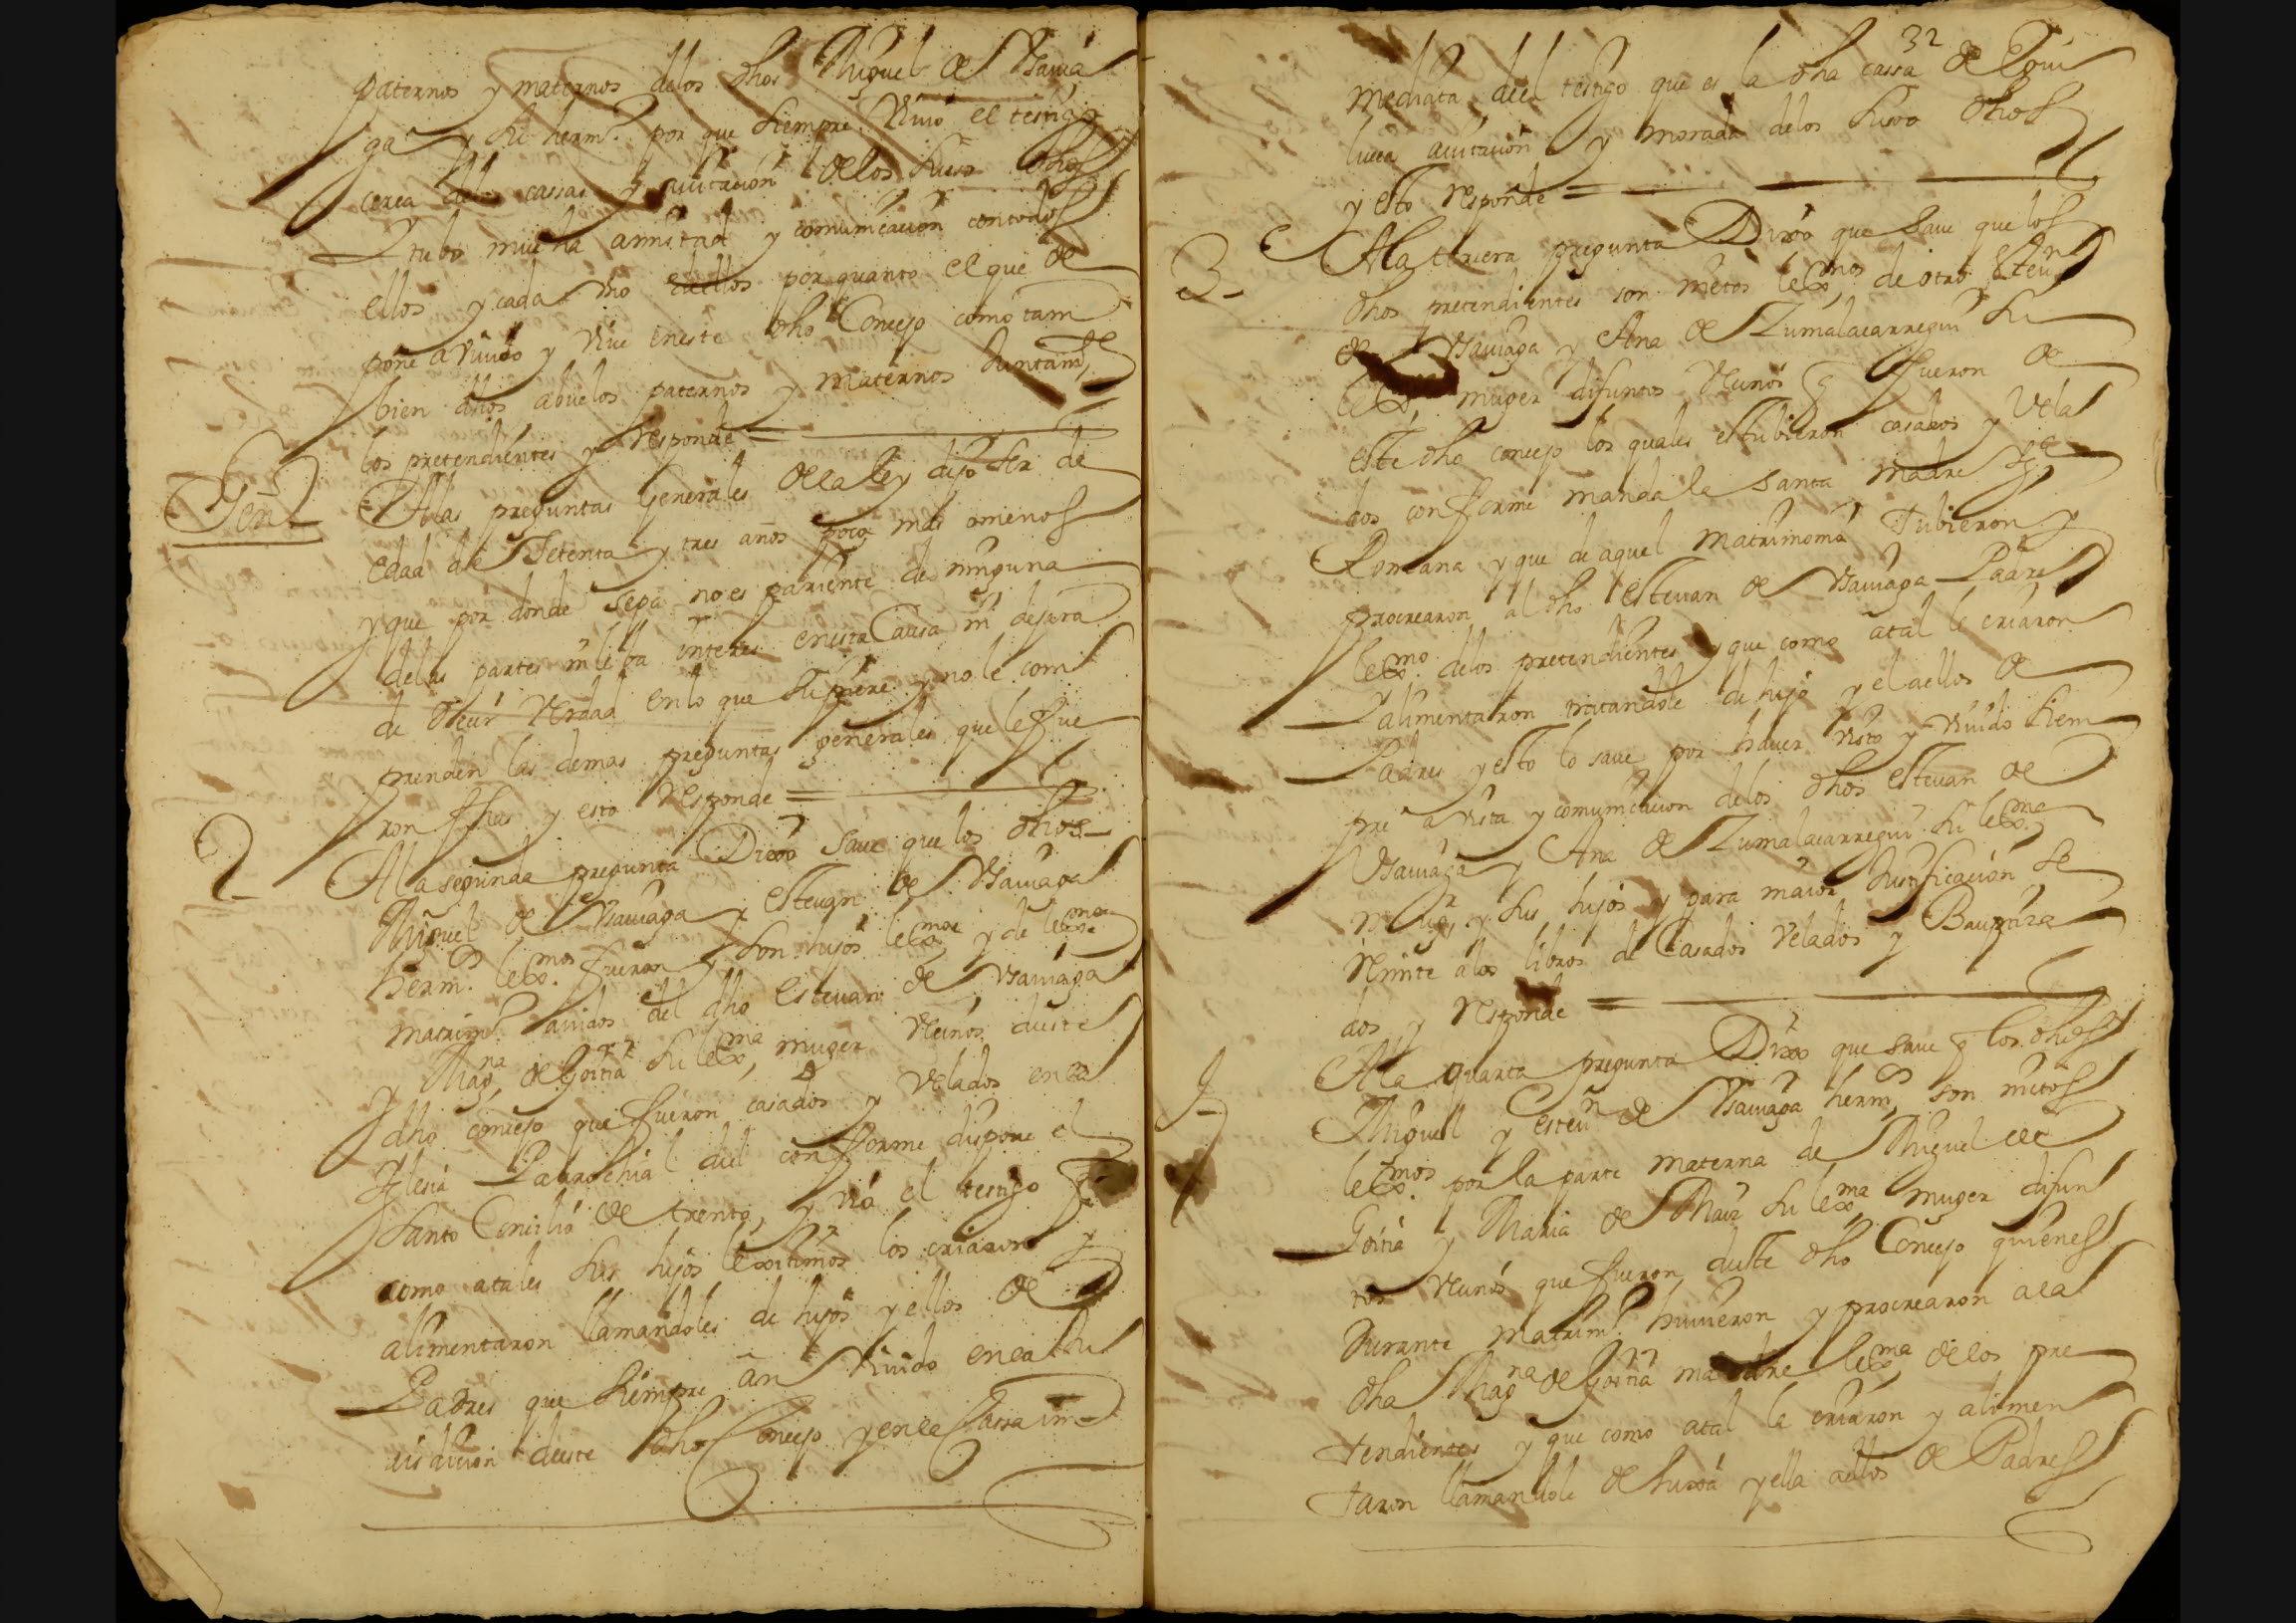 paternos y maternos delos dhos Miguel de Vsauia
ga y su herm.o por que siempre Viuio el testigo
cerca delas cassas y auitacion delos suso dhos
y tubo mucha amistad y comunicacion con todos
ellos y cada vno dellos por quanto el que de
pone a viuido y viue eneste dho Concejo como tam
bien dhos abuelos paternos y maternos Juntam.te
los pretendientes y responde =
Gen.s
Alas preguntas Generales dela ley dijo ser de
edad de Setenta y tres años poco mas omenos
y que por donde sepa no es pariente de ninguna
delas partes ni le ba interes enesta Causa ni dejara
de decir Verdad en lo que supiere y no le com
prenden las demas preguntas generales que le fue
ron fhas y esto responde =
2
Ala segunda pregunta Dixo saue que los dhos
Miguel de Vsauiaga y esteuan de Vsauiaga
herm.os lex.mos fueron y son hijos lex.mos y de lex.mo
matrim.o auidos del dho esteuan de Vsauiaga
y Mag.na de Goitia su lex.ma muger Vecinos deste
dho concejo que fueron casados y Velados enla
Iglesia Parrochial del conforme dispone el
Santo Concilio de trento, y vio el testigo q
como atales sus hijos lexitimos los criaron y
alimentaron llamandoles de hijos y ellos de
Padres que siempre an Viuido enla Ju
risdicion deste dho Concejo y enla Cassa in
32
mediata del testigo que es la dha cassa de Egui
luca auitacion y morada delos suso dhos
y esto responde =
3
Ala tercera pregunta Dixo que saue que los
dhos pretendientes son nietos lex.mos de otro Esteu.n
de Vsauiaga y Ana de Zumalacarregui su
lex.ma muger difuntos Vecinos q fueron de
este dho concejo los quales estubieron casados y Vela
dos conforme manda la santa madre Yg.a
Romana y que de aquel matrimonio Tubieron y
procrearon al dho esteuan de Vsauiaga Padre
lex.mo delos pretendientes y que como atal le criaron
y alimentaron tratandole de hijo y el aellos de
Padres y esto lo saue por hauer visto y viuido siem
pre a vista y comunicacion delos dhos esteuan de
Vsauiaga y Ana de Zumalacarregui su lex.ma
mug.r y sus hijos y para maior Justificacion se
remite alos libros de Casados Velados y Baupti̇za
dos y responde =
4
Ala quarta pregunta Dixo que saue q los dhos
Miguel y esteu.n de Vsauiaga herm.os son nietos
lex.mos por la parte materna de Miguel de
Goitia y Maria de Maiz su lex.ma muger difun
tos Vecinos que fueron deste dho Concejo quienes
Durante matrim.o huuieron y procrearon ala
dha Mag.na de Goitia madre lex.ma delos pre
tendientes y que como atal la criaron y alimen
taron llamandole de hixa y ella aellos de Padres